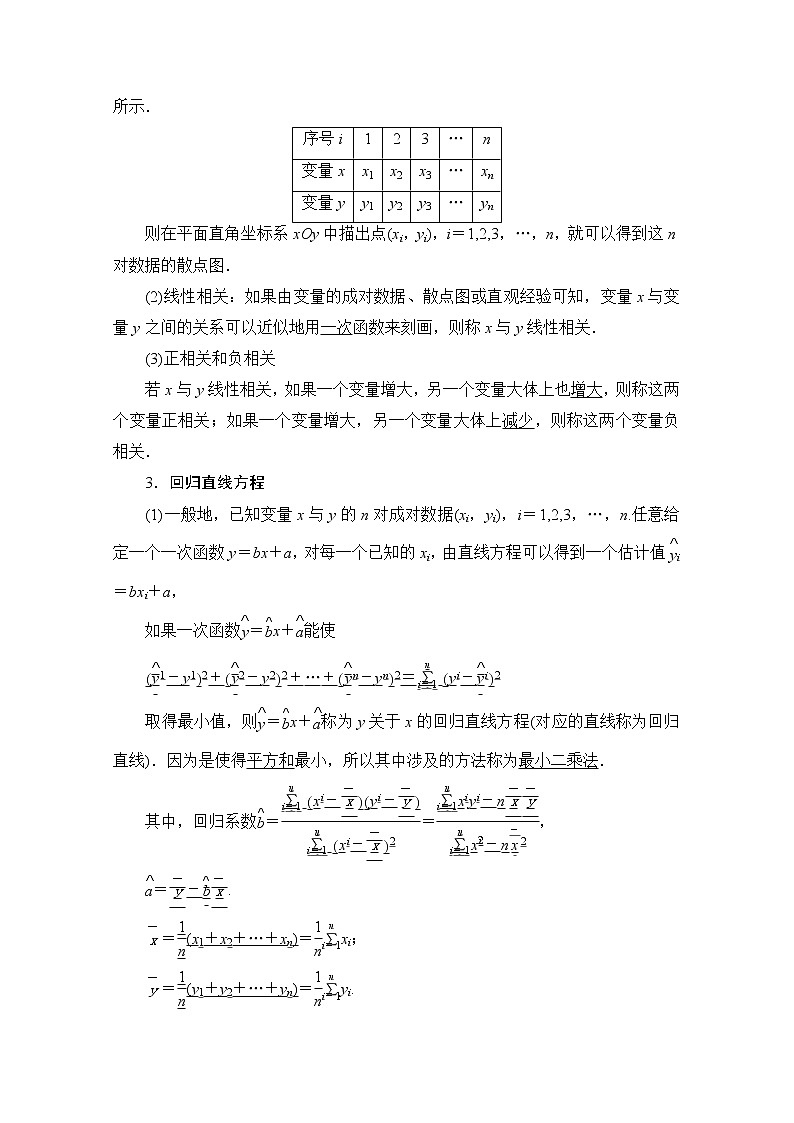 所示.
序号 i 1 2 3 … n
变量 x x₁ x₂ x₃ … xₙ
变量 y y₁ y₂ y₃ … yₙ
则在平面直角坐标系 xOy 中描出点(xᵢ,yᵢ),i=1,2,3,…,n,就可以得到这 n
对数据的散点图.
(2)线性相关:如果由变量的成对数据、散点图或直观经验可知,变量 x 与变
量 y 之间的关系可以近似地用一次函数来刻画,则称 x 与 y 线性相关.
(3)正相关和负相关
若 x 与 y 线性相关,如果一个变量增大,另一个变量大体上也增大,则称这两
个变量正相关;如果一个变量增大,另一个变量大体上减少,则称这两个变量负
相关.
3.回归直线方程
(1)一般地,已知变量 x 与 y 的 n 对成对数据(xᵢ,yᵢ),i=1,2,3,…,n.任意给
定一个一次函数 y=bx+a,对每一个已知的 xᵢ,由直线方程可以得到一个估计值ŷᵢ
=bxᵢ+a,
如果一次函数ŷ=b̂x+â能使
(ŷ1-y1)2+(ŷ2-y2)2+…+(ŷn-yn)2=∑ⁿᵢ₌₁ (yi-ŷi)2
取得最小值,则ŷ=b̂x+â称为 y 关于 x 的回归直线方程(对应的直线称为回归
直线).因为是使得平方和最小,所以其中涉及的方法称为最小二乘法.
其中,回归系数b̂=∑ⁿᵢ₌₁ (xi-x̄)(yi-ȳ)/∑ⁿᵢ₌₁ (xi-x̄)2=∑ⁿᵢ₌₁xiyi-nx̄ȳ/∑ⁿᵢ₌₁xᵢ²-nx̄2,
â=ȳ-b̂x̄.
x̄=1/n(x₁+x₂+…+xₙ)=1/n∑ⁿᵢ₌₁xᵢ;
ȳ=1/n(y₁+y₂+…+yₙ)=1/n∑ⁿᵢ₌₁yᵢ.